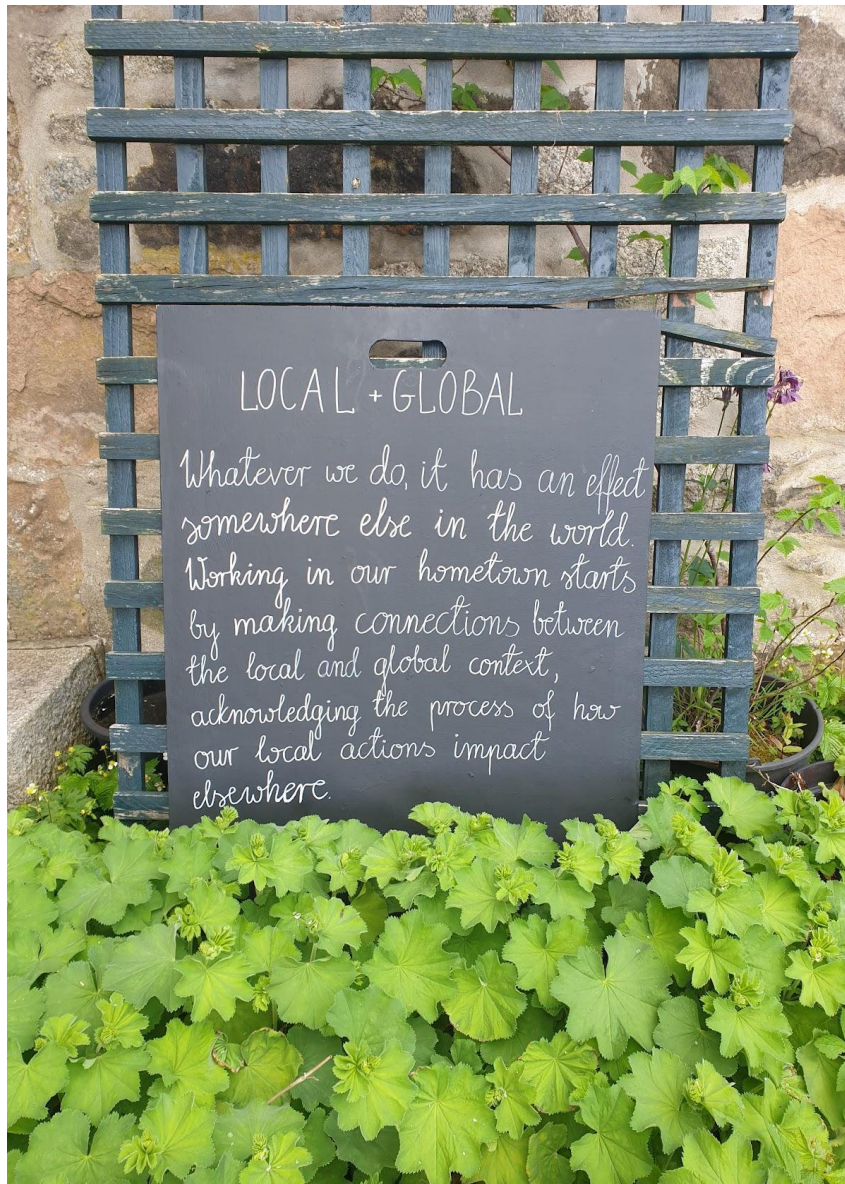 LOCAL + GLOBAL
Whatever we do, it has an effect
somewhere else in the world.
Working in our hometown starts
by making connections between
the local and global context,
acknowledging the process of how
our local actions impact
elsewhere.